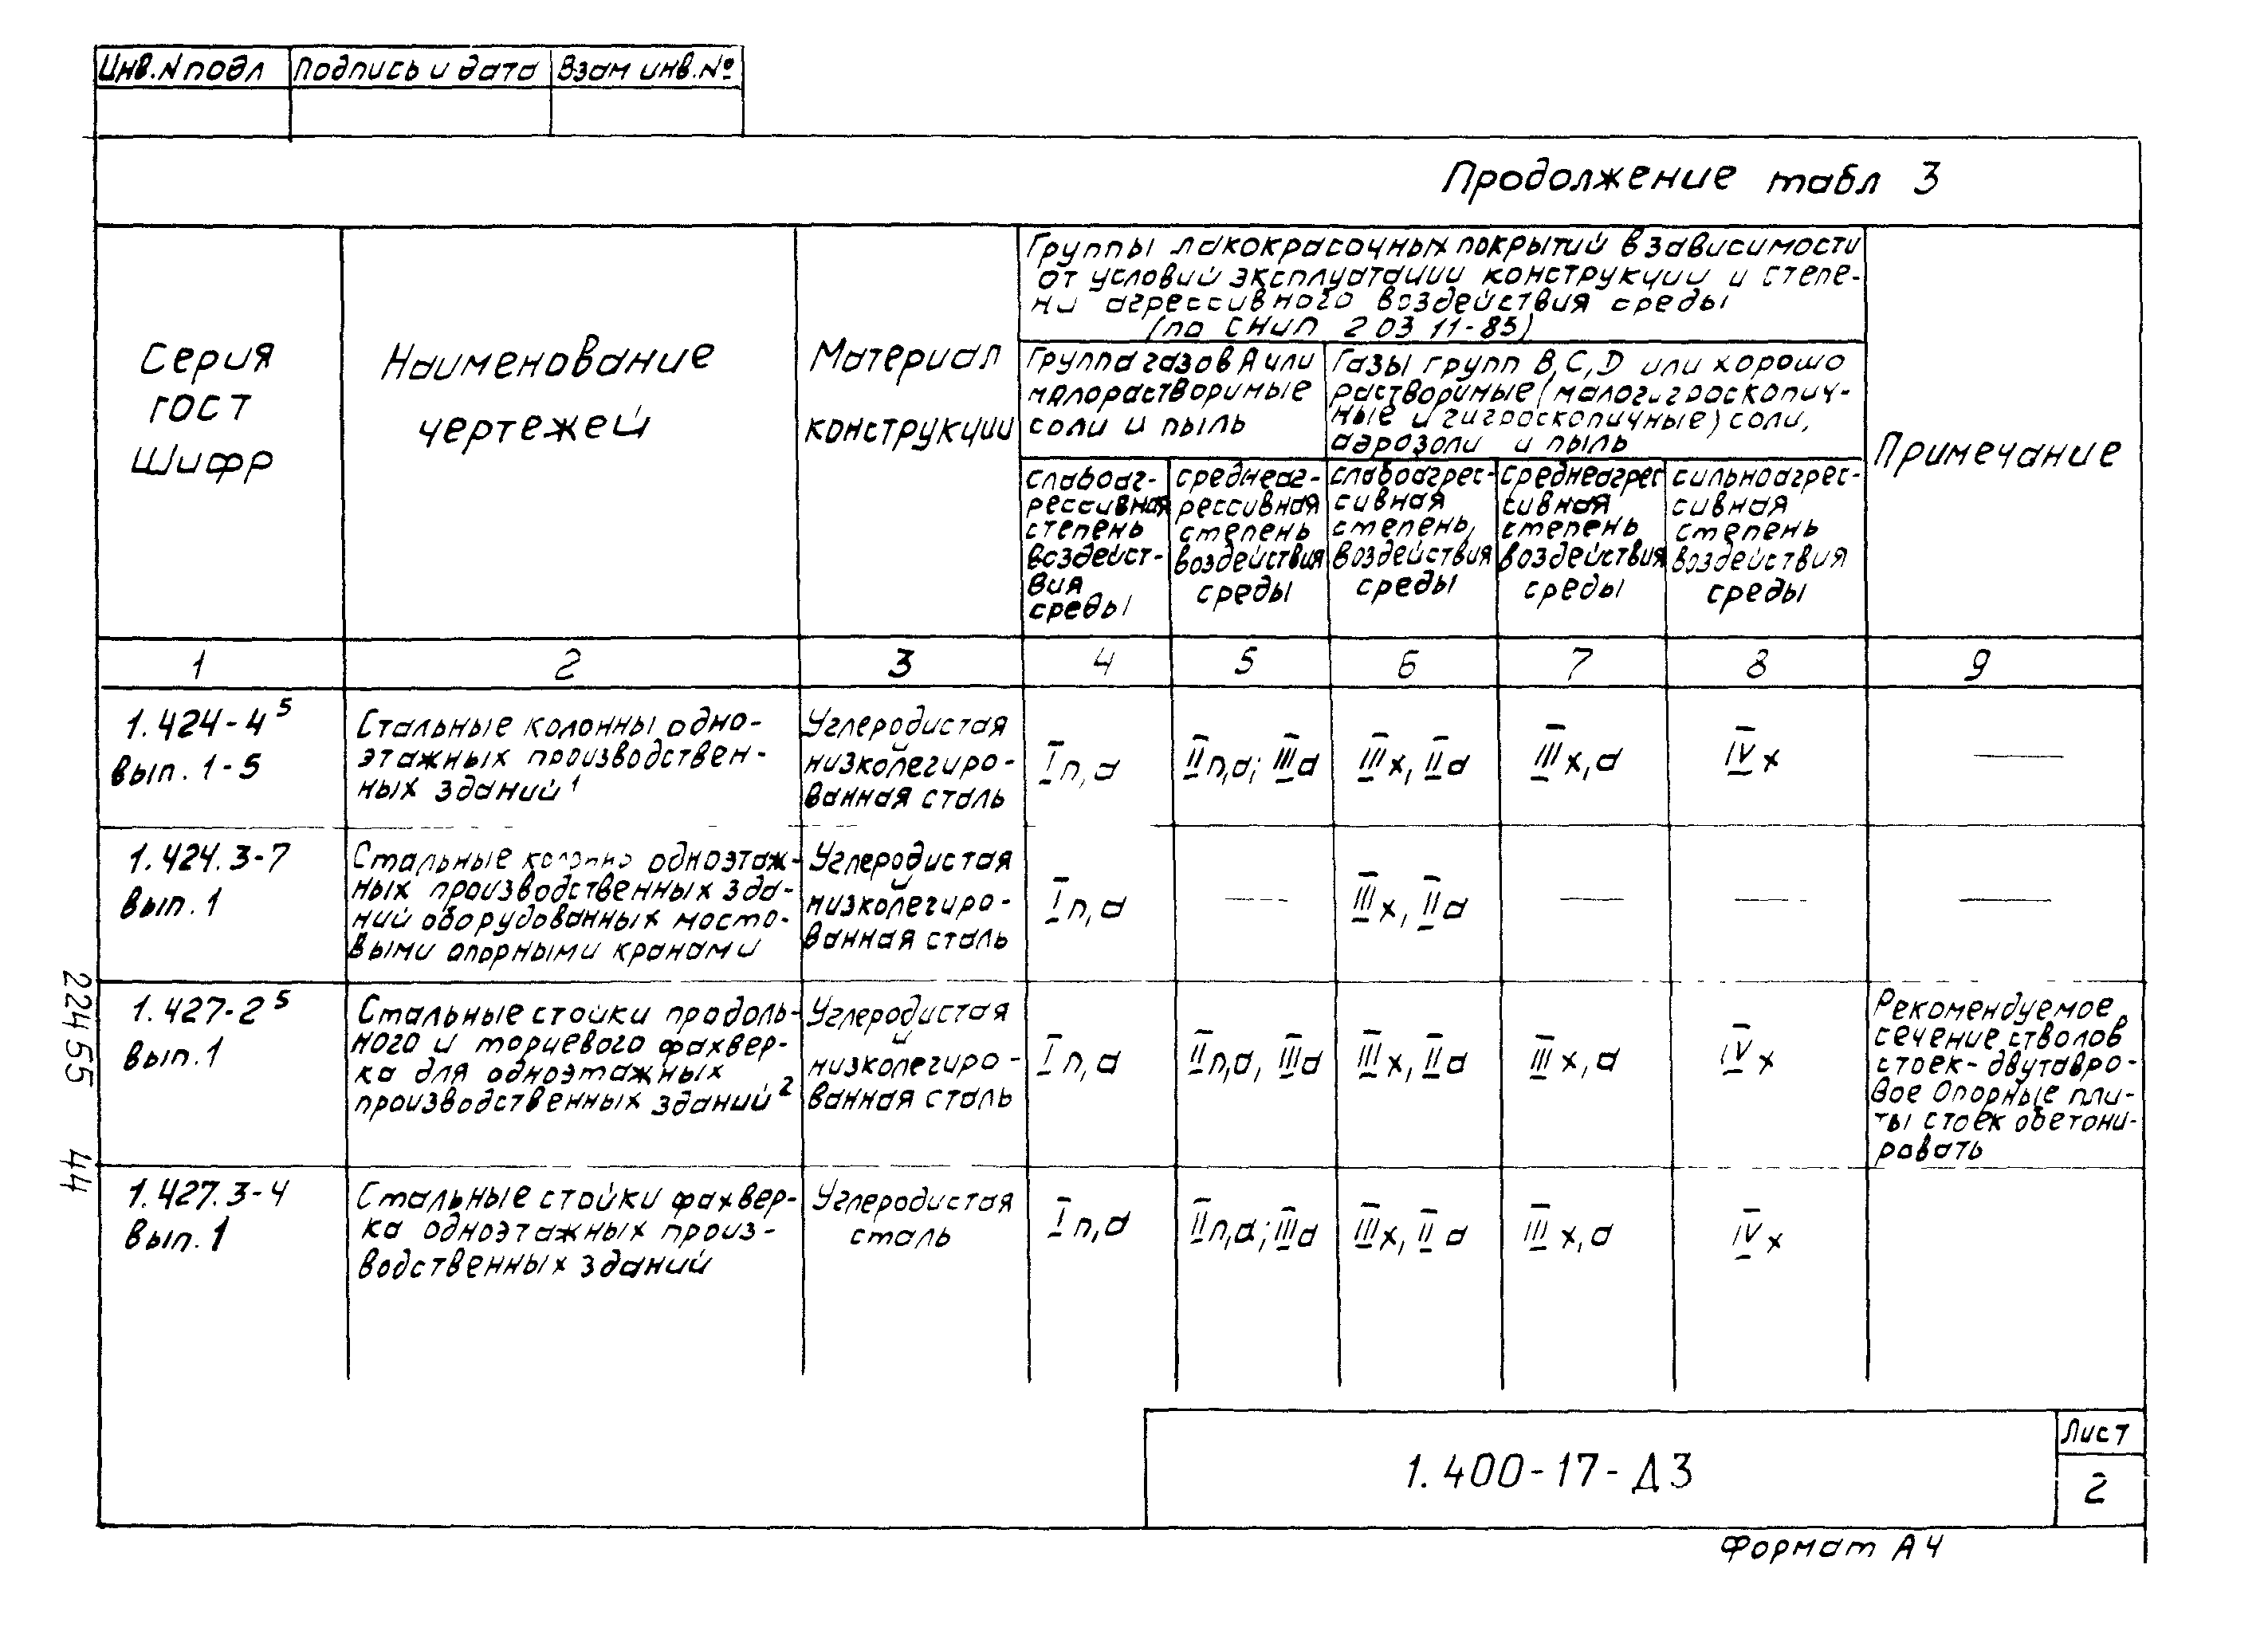 Инв. N подл Подпись и дата Взам инв. №
Продолжение табл 3
Серия
ГОСТ
Шифр
Наименование
чертежей
Материал
конструкции
Группы лакокрасочных покрытий в зависимости
от условий эксплуатации конструкции и степе-
ни агрессивного воздействия среды
(по СНиП 2 03 11-85)
Группа газов А или
малорастворимые
соли и пыль
Газы групп В, С, D или хорошо
растворимые (малогигроскопич-
ные и гигроскопичные) соли,
аэрозоли и пыль
слабоаг-
рессивная
степень
воздейст-
вия
среды
среднеаг-
рессивная
степень
воздействия
среды
слабоагрес-
сивная
степень,
воздействия
среды
среднеагрес
сивная
степень
воздействия
среды
сильноагрес-
сивная
степень
воздействия
среды
Примечание
1 2 3 4 5 6 7 8 9
1.424-4⁵
вып. 1-5
Стальные колонны одно-
этажных производствен-
ных зданий¹
Углеродистая
и
низколегиро-
ванная сталь
I п, а
II п, а; III а
III х, II а
III х, а
IV х
—
1.424.3-7
вып. 1
Стальные одноэтаж-
ных производственных зда-
ний оборудованных мосто-
выми опорными кранами
Углеродистая
и
низколегиро-
ванная сталь
I п, а
—
III х, II а
—
—
—
1.427-2⁵
вып. 1
Стальные стойки продоль-
ного и торцевого фахвер-
ка для одноэтажных
производственных зданий²
Углеродистая
и
низколегиро-
ванная сталь
I п, а
II п, а, III а
III х, II а
III х, а
IV х
Рекомендуемое
сечение стволов
стоек - двутавро-
вое Опорные пли-
ты стоек обетони-
ровать
1.427.3-4
вып. 1
Стальные стойки фахвер-
ка одноэтажных произ-
водственных зданий
Углеродистая
сталь
I п, а
II п, а; III а
III х, II а
III х, а
IV х
22455 44
1.400-17-Д3
Лист
2
Формат А4